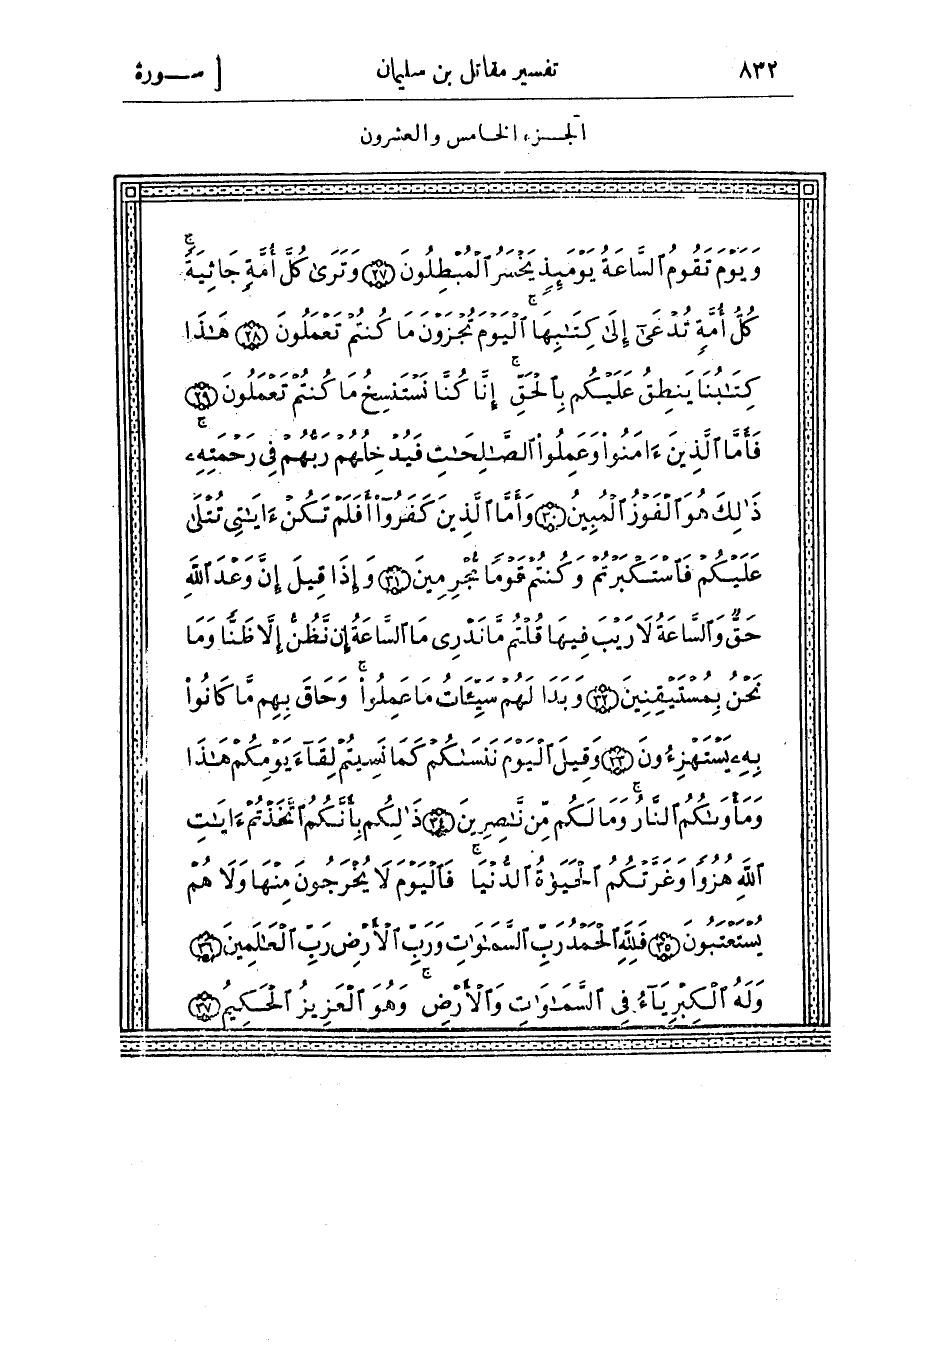 ٨٣٢ تفسير مقاتل بن سليمان [ ســورة
الجــزء الخامس والعشرون
وَيَوْمَ تَقُومُ ٱلسَّاعَةُ يَوْمَئِذٍ يَخْسَرُ ٱلْمُبْطِلُونَ ﴿٢٧﴾ وَتَرَىٰ كُلَّ أُمَّةٍ جَاثِيَةً ۚ
كُلُّ أُمَّةٍ تُدْعَىٰٓ إِلَىٰ كِتَٰبِهَا ۚ ٱلْيَوْمَ تُجْزَوْنَ مَا كُنتُمْ تَعْمَلُونَ ﴿٢٨﴾ هَٰذَا
كِتَٰبُنَا يَنطِقُ عَلَيْكُم بِٱلْحَقِّ ۚ إِنَّا كُنَّا نَسْتَنسِخُ مَا كُنتُمْ تَعْمَلُونَ ﴿٢٩﴾
فَأَمَّا ٱلَّذِينَ ءَامَنُوا۟ وَعَمِلُوا۟ ٱلصَّٰلِحَٰتِ فَيُدْخِلُهُمْ رَبُّهُمْ فِى رَحْمَتِهِۦ ۚ
ذَٰلِكَ هُوَ ٱلْفَوْزُ ٱلْمُبِينُ ﴿٣٠﴾ وَأَمَّا ٱلَّذِينَ كَفَرُوٓا۟ أَفَلَمْ تَكُنْ ءَايَٰتِى تُتْلَىٰ
عَلَيْكُمْ فَٱسْتَكْبَرْتُمْ وَكُنتُمْ قَوْمًا مُّجْرِمِينَ ﴿٣١﴾ وَإِذَا قِيلَ إِنَّ وَعْدَ ٱللَّهِ
حَقٌّ وَٱلسَّاعَةُ لَا رَيْبَ فِيهَا قُلْتُم مَّا نَدْرِى مَا ٱلسَّاعَةُ إِن نَّظُنُّ إِلَّا ظَنًّا وَمَا
نَحْنُ بِمُسْتَيْقِنِينَ ﴿٣٢﴾ وَبَدَا لَهُمْ سَيِّـَٔاتُ مَا عَمِلُوا۟ ۚ وَحَاقَ بِهِم مَّا كَانُوا۟
بِهِۦ يَسْتَهْزِءُونَ ﴿٣٣﴾ وَقِيلَ ٱلْيَوْمَ نَنسَىٰكُمْ كَمَا نَسِيتُمْ لِقَآءَ يَوْمِكُمْ هَٰذَا
وَمَأْوَىٰكُمُ ٱلنَّارُ ۚ وَمَا لَكُم مِّن نَّٰصِرِينَ ﴿٣٤﴾ ذَٰلِكُم بِأَنَّكُمُ ٱتَّخَذْتُمْ ءَايَٰتِ
ٱللَّهِ هُزُوًا وَغَرَّتْكُمُ ٱلْحَيَوٰةُ ٱلدُّنْيَا ۚ فَٱلْيَوْمَ لَا يُخْرَجُونَ مِنْهَا وَلَا هُمْ
يُسْتَعْتَبُونَ ﴿٣٥﴾ فَلِلَّهِ ٱلْحَمْدُ رَبِّ ٱلسَّمَٰوَٰتِ وَرَبِّ ٱلْأَرْضِ رَبِّ ٱلْعَٰلَمِينَ ﴿٣٦﴾
وَلَهُ ٱلْكِبْرِيَآءُ فِى ٱلسَّمَٰوَٰتِ وَٱلْأَرْضِ ۚ وَهُوَ ٱلْعَزِيزُ ٱلْحَكِيمُ ﴿٣٧﴾